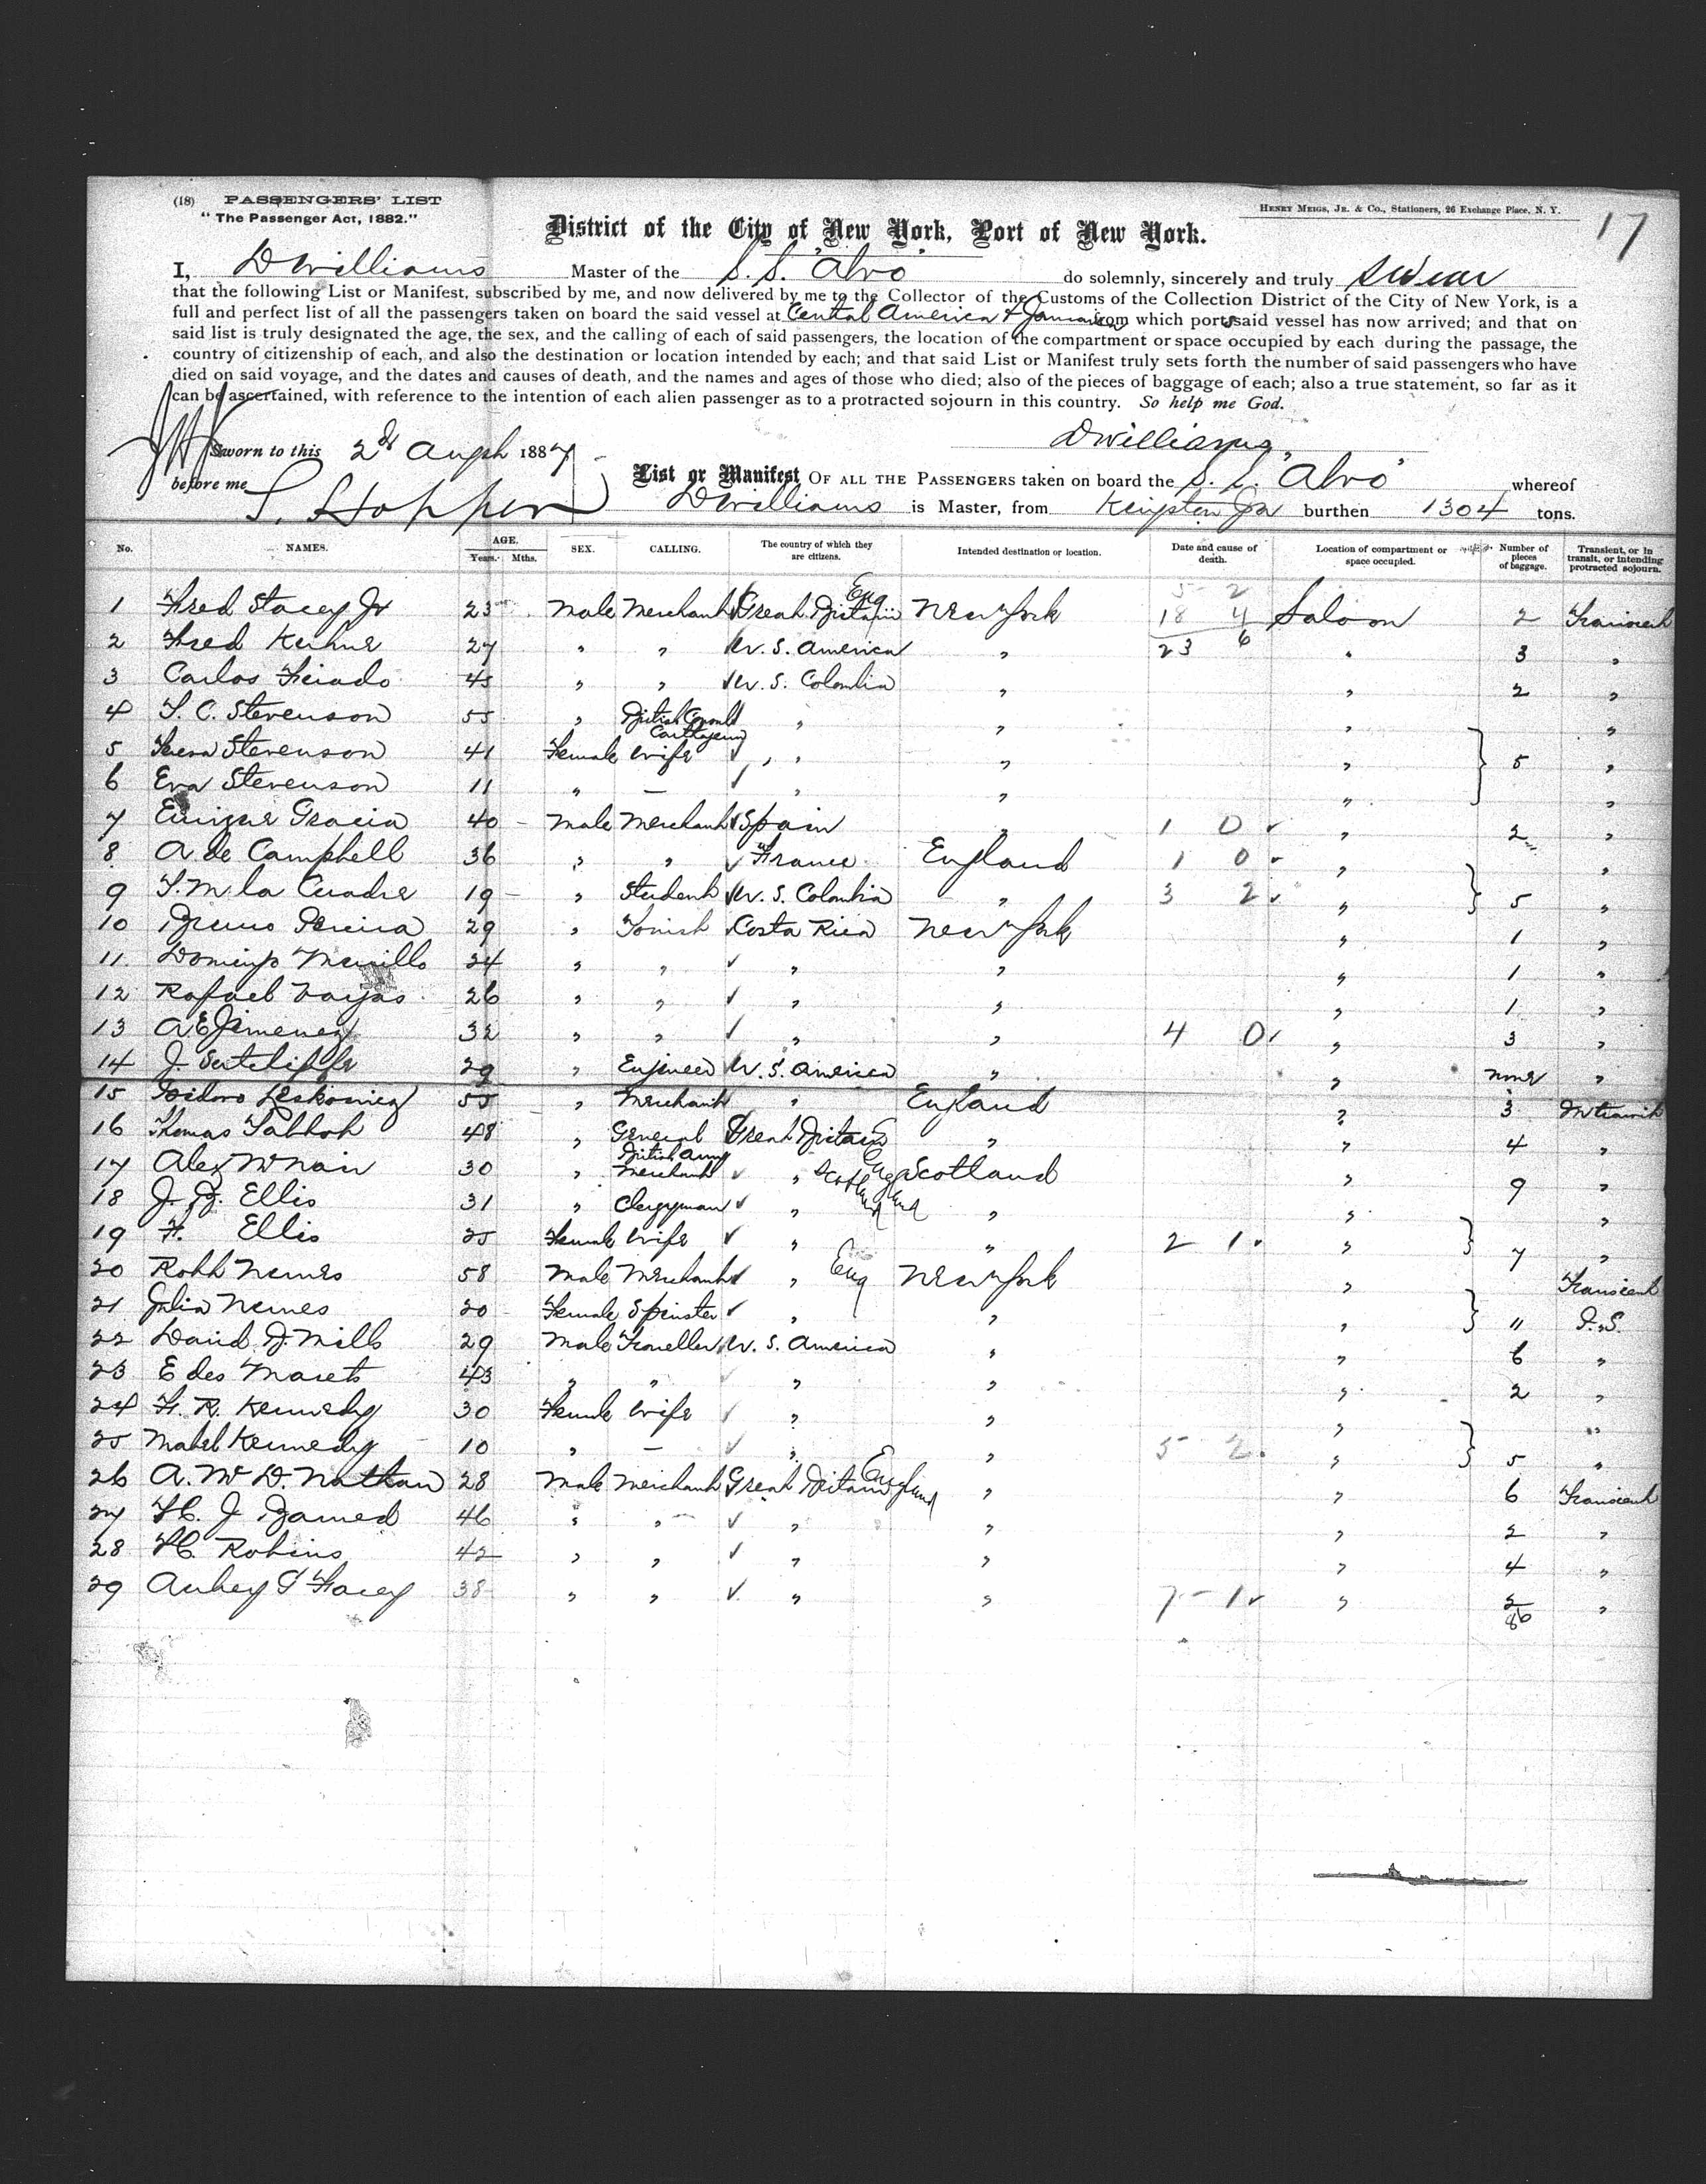 (18) PASSENGERS' LIST
"The Passenger Act, 1882."
HENRY MEIGS, JR. & Co., Stationers, 26 Exchange Place, N. Y.
17
District of the City of New York, Port of New York.
I, D Williams Master of the S.S. "Alvo" do solemnly, sincerely and truly swear
that the following List or Manifest, subscribed by me, and now delivered by me to the Collector of the Customs of the Collection District of the City of New York, is a
full and perfect list of all the passengers taken on board the said vessel at Central America & Jamaica from which ports said vessel has now arrived; and that on
said list is truly designated the age, the sex, and the calling of each of said passengers, the location of the compartment or space occupied by each during the passage, the
country of citizenship of each, and also the destination or location intended by each; and that said List or Manifest truly sets forth the number of said passengers who have
died on said voyage, and the dates and causes of death, and the names and ages of those who died; also of the pieces of baggage of each; also a true statement, so far as it
can be ascertained, with reference to the intention of each alien passenger as to a protracted sojourn in this country. So help me God.
D Williams
Sworn to this 2d Augst 1887
before me S. Hopper
List or Manifest OF ALL THE PASSENGERS taken on board the S.S. "Alvo" whereof
D Williams is Master, from Kingston Ja burthen 1304 tons.
No. NAMES. AGE. Years. Mths. SEX. CALLING. The country of which they are citizens. Intended destination or location. Date and cause of death. Location of compartment or space occupied. Number of pieces of baggage. Transient, or in transit, or intending protracted sojourn.
5 2
1 Fred Stacey Jr 25 Male Merchant Great Britain Eng New York 18 4 Saloon 2 Transient
2 Fred 27 " " U. S. America " 23 6 " 3 "
3 Carlos 45 " " U. S. Colombia " " 2 "
4 T. C. Stevenson 55 " British Consul Carthagena " " " "
5 Teresa Stevenson 41 Female Wife " " " " 5 "
6 Eva Stevenson 11 " — " " " "
7 Enrique Gracia 40 Male Merchant Spain " 1 0 " 2 "
8 A de Campbell 36 " " France England 1 0 " "
9 T. M. la 19 " Student U. S. Colombia " 3 2 " 5 "
10 Pereira 29 " Tourist Costa Rica New York " 1 "
11 Domingo Murillo 24 " " " " " 1 "
12 Rafael Vargas 26 " " " " " 1 "
13 A E Jimenez 32 " " " " 4 0 " 3 "
14 J. Sutcliffe 29 " Engineer U. S. America " " none "
15 Isidoro 55 " Merchant " England " 3 In transit
16 Thomas 48 " General British Army Great Britain " " 4 "
17 Alex McNair 30 " Merchant " Scotland Scotland " 9 "
18 J. B. Ellis 31 " Clergyman " England " " "
19 F. Ellis 25 Female Wife " " 2 1 " 7 "
20 Robt Nunes 58 Male Merchant " Eng New York " Transient
21 Julia Nunes 20 Female Spinster " " " " P. S.
22 David J. Mills 29 Male Traveller U. S. America " " 6 "
23 E des Marets 43 " " " " " 2 "
24 F. R. Kennedy 30 Female Wife " " " "
25 Mabel Kennedy 10 " — " " 5 2 " 5 "
26 A. McD. Nathan 28 Male Merchant Great Britain England " " 6 Transient
27 H. J. 46 " " " " " 2 "
28 H. Robins 42 " " " " " 4 "
29 38 " " " " 7 1 " 2 "
86